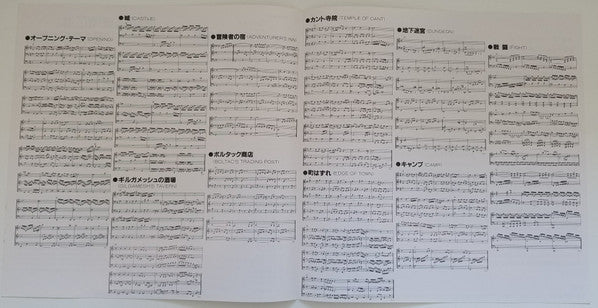 ●オープニング・テーマ (OPENING)
●城 (CASTLE)
●ギルガメッシュの酒場
(GILGAMESH'S TAVERN)
●冒険者の宿 (ADVENTURER'S INN)
●ボルタック商店
(BOLTAC'S TRADING POST)
●カント寺院 (TEMPLE OF CANT)
●町はずれ (EDGE OF TOWN)
●地下迷宮 (DUNGEON)
●キャンプ (CAMP)
●戦闘 (FIGHT)